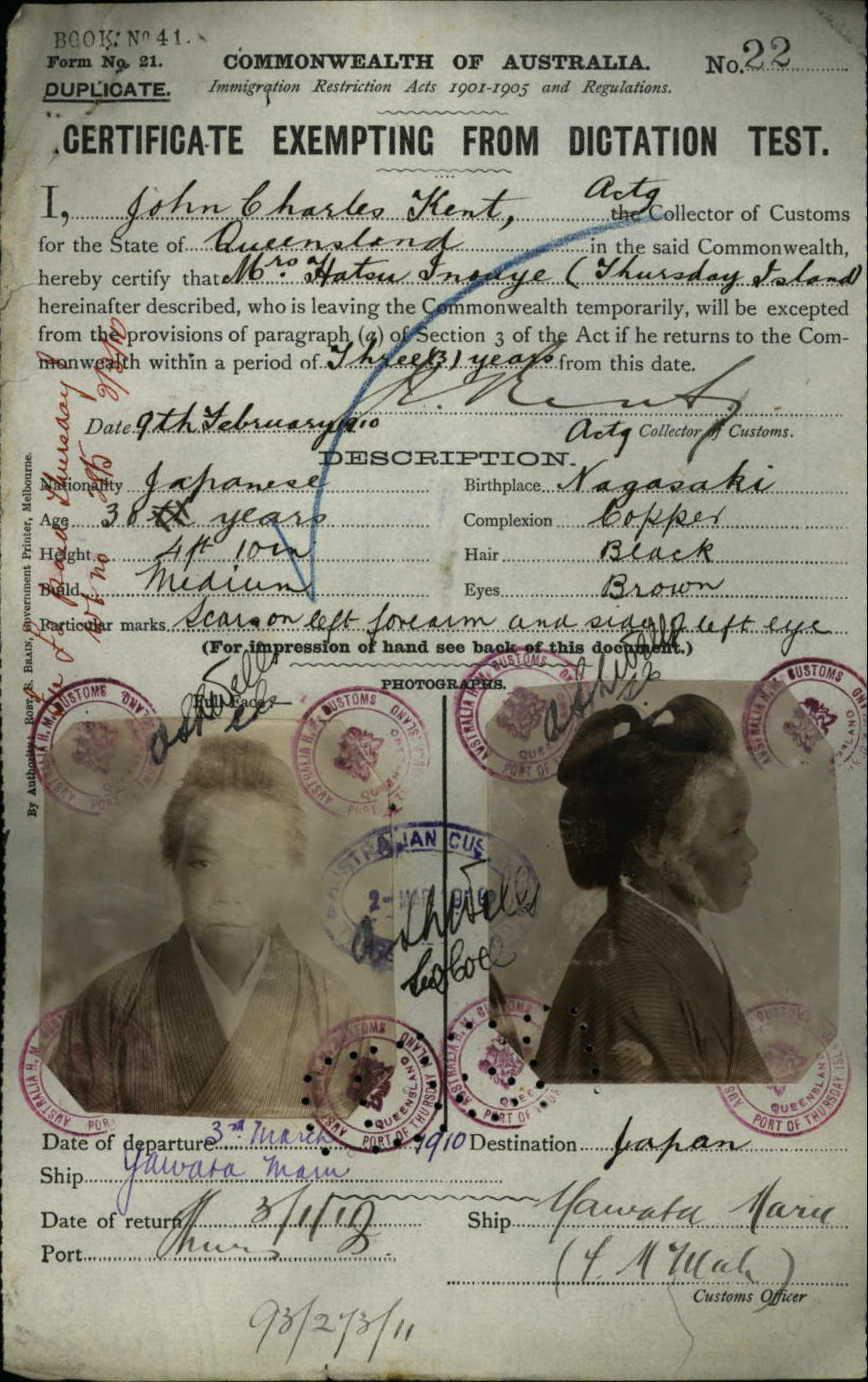 BOOK. Nº 41.
Form No. 21.
COMMONWEALTH OF AUSTRALIA.
No. 22
DUPLICATE.
Immigration Restriction Acts 1901-1905 and Regulations.
CERTIFICATE EXEMPTING FROM DICTATION TEST.
I, John Charles Kent, Actg the Collector of Customs
for the State of Queensland in the said Commonwealth,
hereby certify that Mrs. Hatsu Inouye (Thursday Island)
hereinafter described, who is leaving the Commonwealth temporarily, will be excepted
from the provisions of paragraph (a) of Section 3 of the Act if he returns to the Com-
monwealth within a period of Three (3) years from this date.
Kent
Date 9th February 1910
Actg Collector of Customs.
DESCRIPTION.
Nationality Japanese
Birthplace Nagasaki
Age 30 years
Complexion Copper
Height 4ft 10in
Hair Black
Build Medium
Eyes Brown
Particular marks Scars on left forearm and side of left eye
(For impression of hand see back of this document.)
PHOTOGRAPHS.
Full Face
By Authority: Robt. S. Brain, Government Printer, Melbourne.
AUSTRALIA H.M. CUSTOMS
QUEENSLAND
PORT OF THURSDAY ISLAND
AUSTRALIAN CUS
Date of departure 3rd March 1910
Destination Japan
Ship Yawata Maru
Date of return 3/1/12
Ship Yawata Maru
Port Thurs
Customs Officer
93/273/11